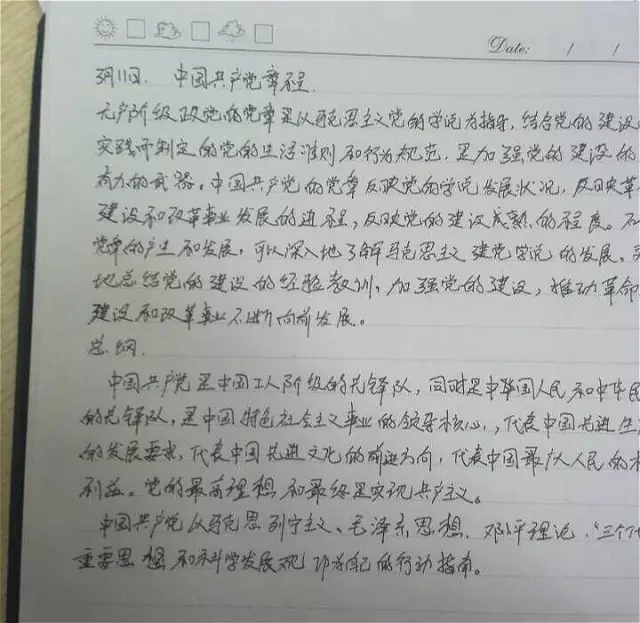 Date: / /
3月11日. 中国共产党章程.
无产阶级政党的党章是以马克思主义党的学说为指导,结合党的建设
实践而制定的党的生活准则和行为规范,是加强党的建设的
有力的武器。中国共产党的党章反映党的学说发展状况,反映革
建设和改革事业发展的进程,反映党的建设成熟的程度。
党章的产生和发展,可以深入地了解马克思主义建党学说的发展、
地总结党的建设的经验教训、加强党的建设,推动革命
建设和改革事业不断向前发展。
总纲.
中国共产党是中国工人阶级的先锋队,同时是中华国人民和中华民
的先锋队,是中国特色社会主义事业的领导核心,,代表中国先进生
的发展要求,代表中国先进文化的前进方向,代表中国最广大人民的
利益。党的最高理想和最终是实现共产主义。
中国共产党以马克思列宁主义、毛泽东思想、邓小平理论、“三个代
重要思想和科学发展观作为自己的行动指南。